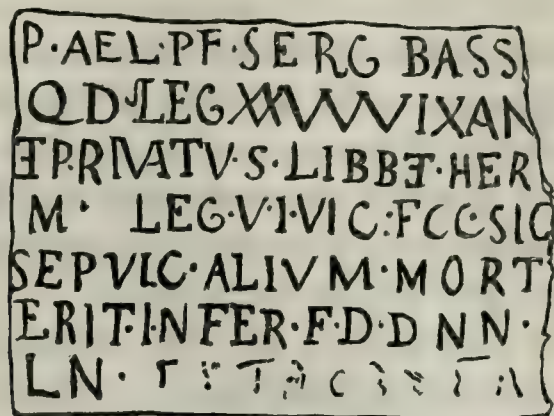 P·AEL·PF·SERG BASS
QD LEG XXVVVVIXAN
ET P.RIVATV·S·LIBBET·HER
M· LEG·V·I·VIC·FCC·SIC
SEPVLC·ALIVM·MORT
ERIT·I·NFER·F·D·DNN·
LN·